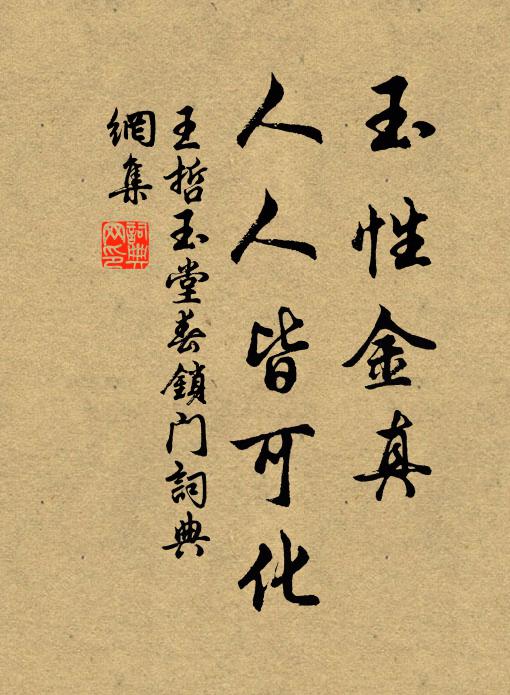 玉性金真
人人皆可化
王哲玉堂春鎖門詞典
網集
詞典
网印